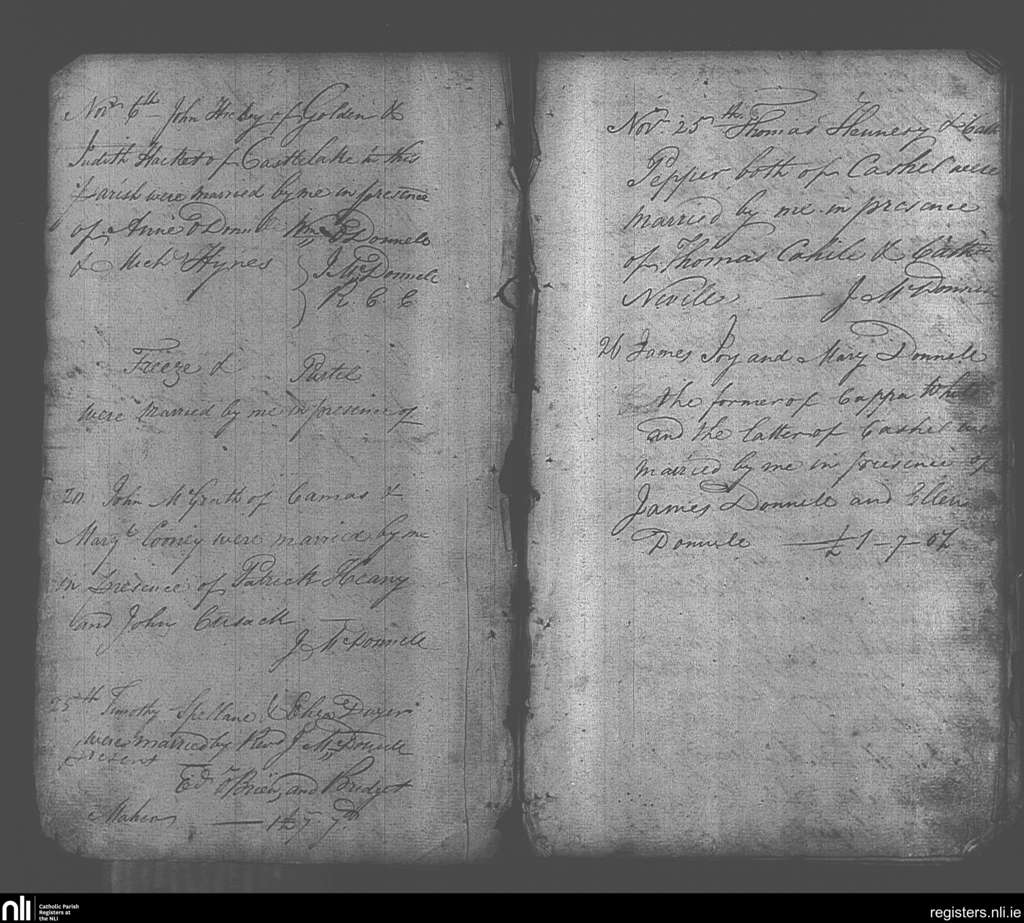 Novr 6th John Hickey of Golden &
Judith Hacket of Castlelake in this
Parish were married by me in presence
of Anne O Donnel Wm O Donnell
& Michl Hynes J McDonnell
R C C
Freeze &
were married by me in presence of
20 John McGrath of Camas &
Margt Cooney were married by me
in Presence of Patrick Heany
and John Cusack
J McDonnell
25th Timothy Spellane & Eliza Dwyer
were married by Revd J McDonnell
present
Ed O'Brien, and Bridget
Maher
Novr 25th Thomas Flannery & Cath
Pepper both of Cashel were
married by me in presence
of Thomas Cahill & Cath
Neville — J McDonnell
26 James Joy and Mary Donnell
the former of Cappa White
and the latter of Cashel were
married by me in presence of
James Donnell and Ellen
Donnell
nli Catholic Parish
Registers at
the NLI
registers.nli.ie